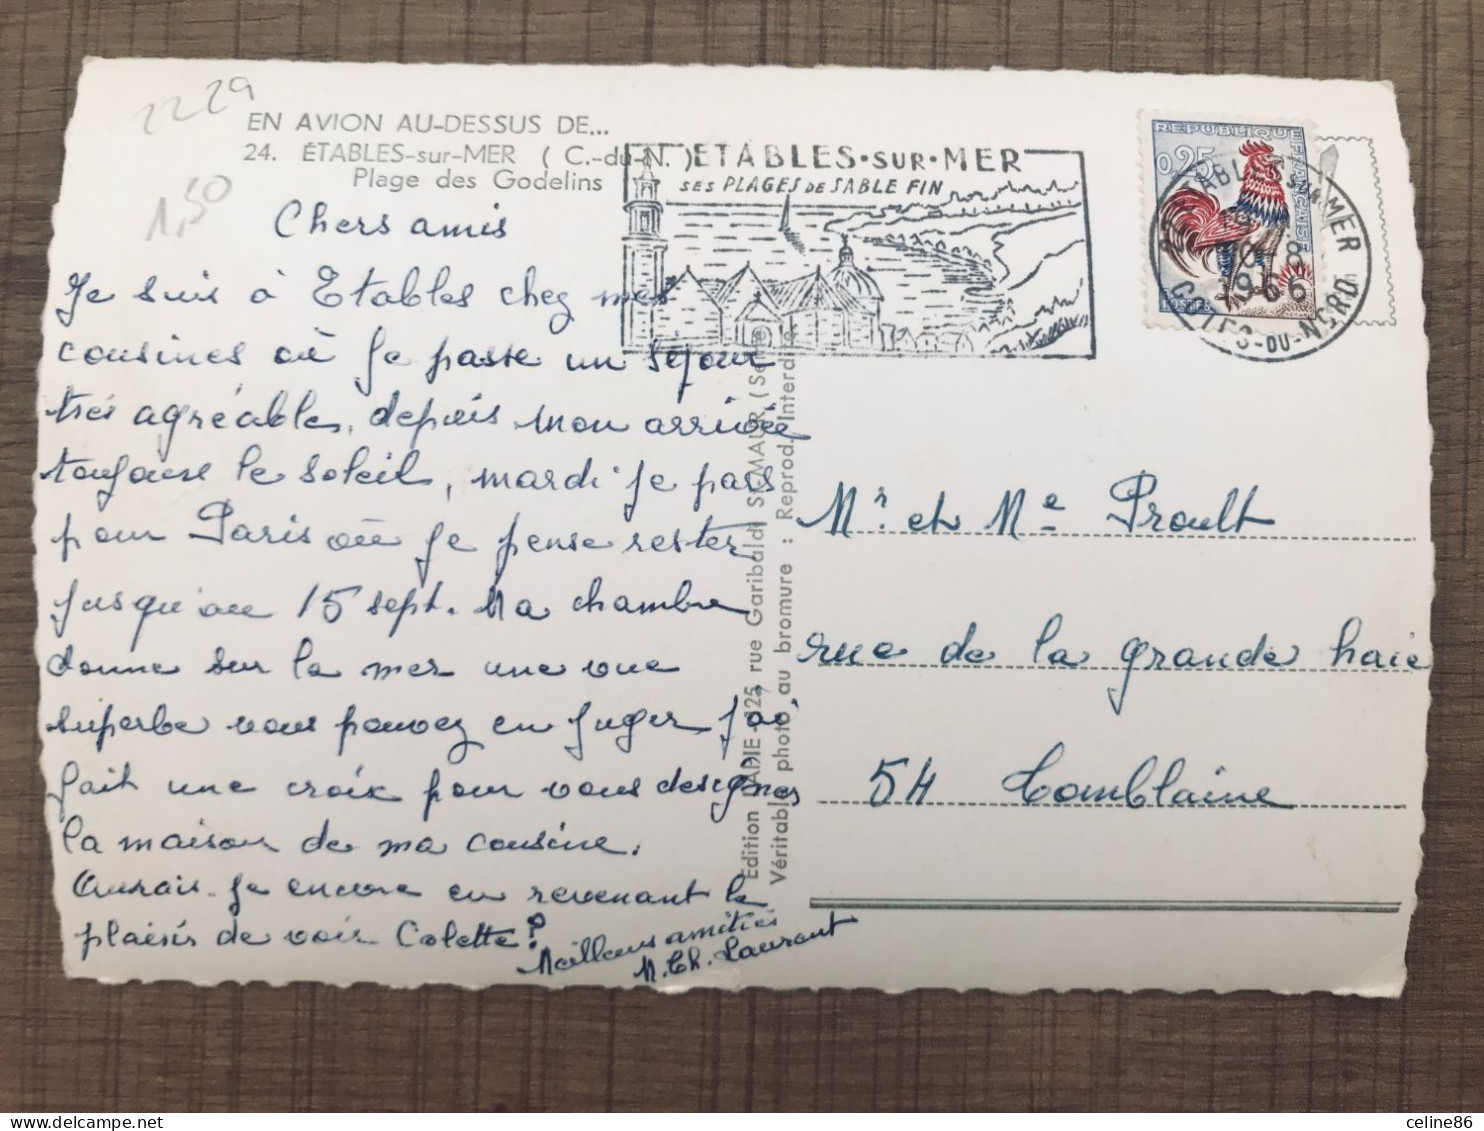 2229
EN AVION AU-DESSUS DE...
24. ÉTABLES-sur-MER ( C.-du-N. )
Plage des Godelins
1,50
ETABLES•SUR•MER
SES PLAGES DE SABLE FIN
REPUBLIQUE
FRANÇAISE
0,25
POSTES
ETABLES SUR MER
10-8
1966
COTES-DU-NORD
Chers amis
Je suis à Etables chez mes
cousines où je passe un séjour
très agréable, depuis mon arrivée
toujours le soleil, mardi je pars
pour Paris où je pense rester
jusqu'au 15 sept. Ma chambre
donne sur la mer une vue
superbe vous pouvez en juger j'ai
fait une croix pour vous designer
la maison de ma cousine.
Aurais-je encore en revenant le
plaisir de voir Colette?
Meilleurs amitiés
M. Th. Laurent
Edition LADIE 125, rue Garibaldi St-MAUR (Seine)
Véritable photo au bromure : Reprod. Interdite
Mr. et Me Proult
rue de la grande haie
54 Tomblaine
celine86